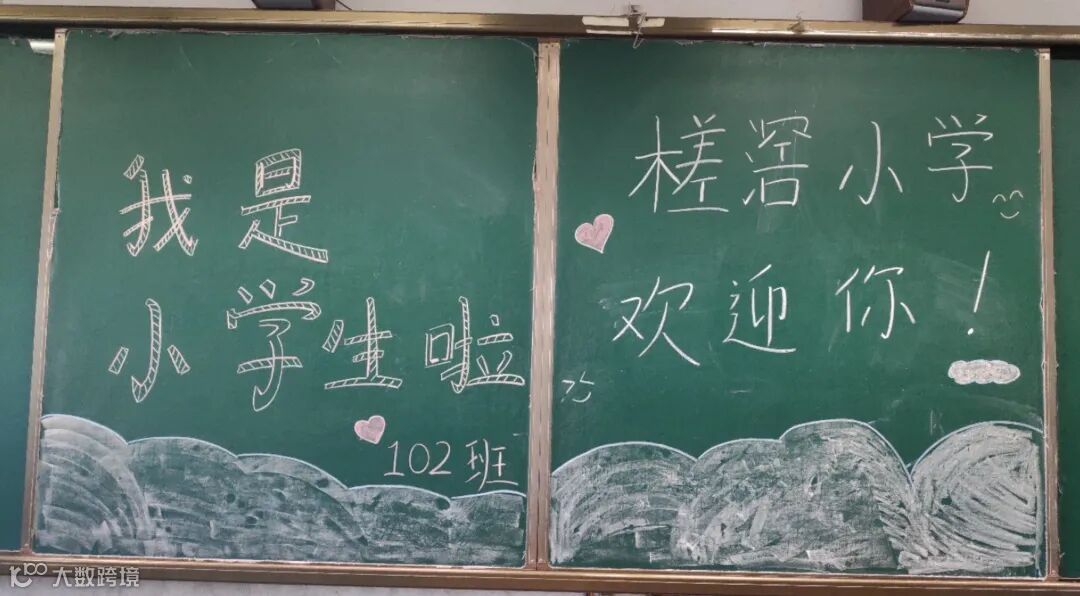 我是
小学生啦
102班
槎滘小学
欢迎你！
大数跨境